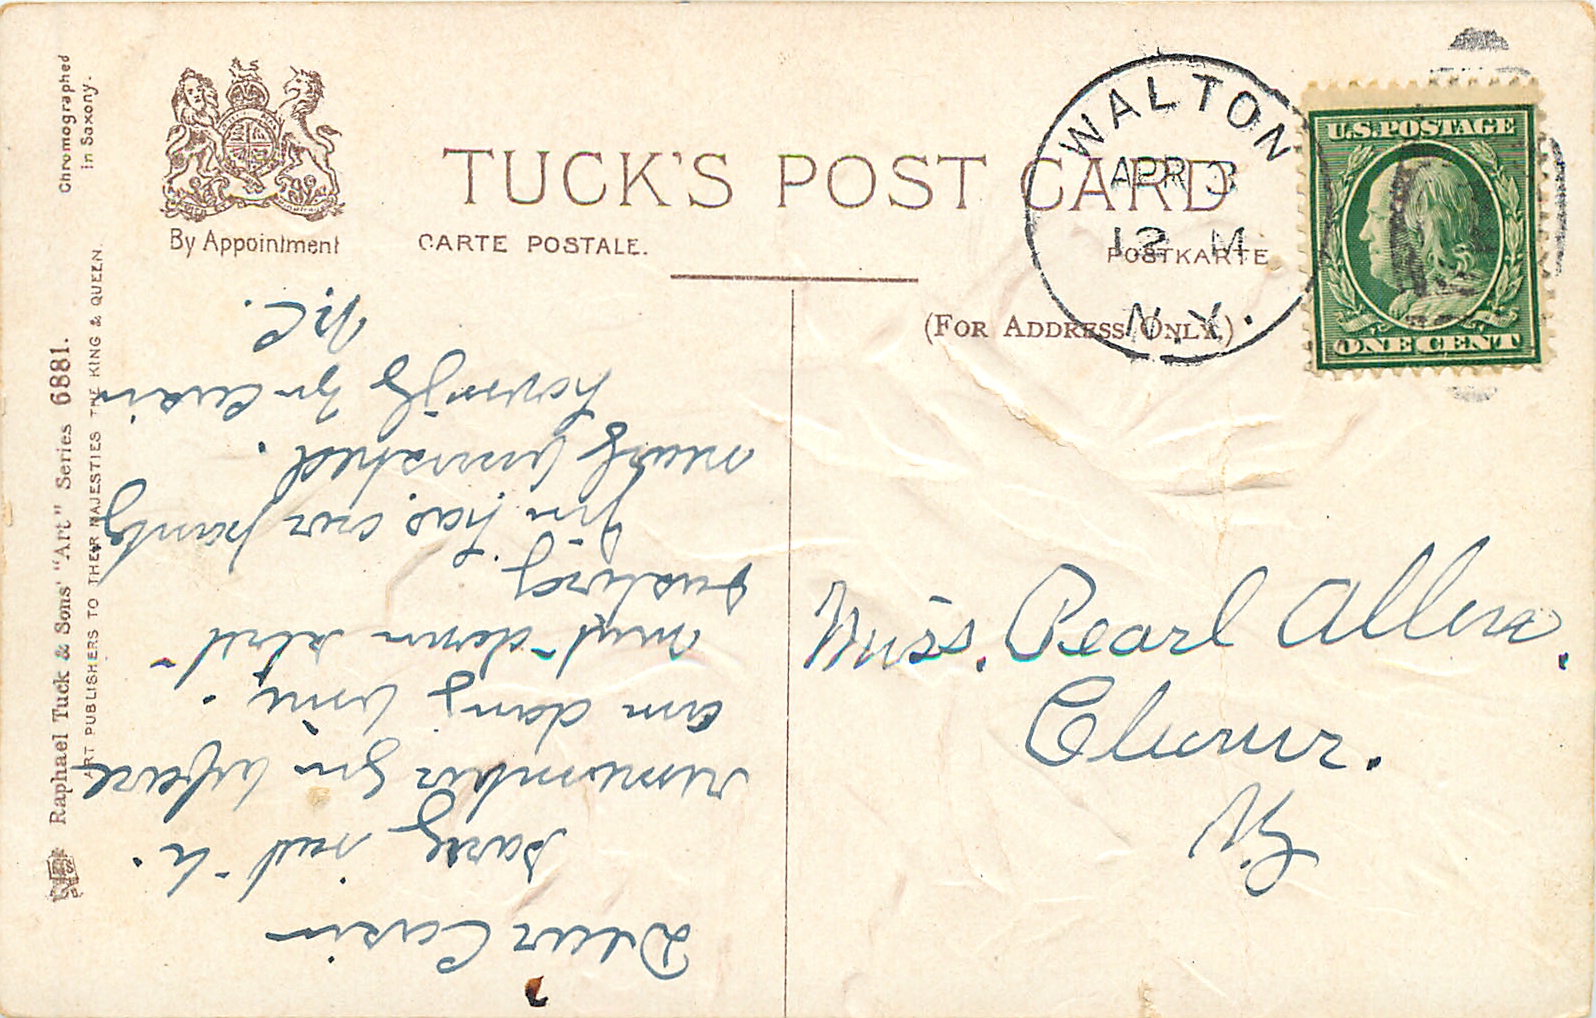 Chromographed
in Saxony.
By Appointment
TUCK'S POST CARD
CARTE POSTALE.
POSTKARTE
(FOR ADDRESS ONLY.)
WALTON
APR 3
12 M
N.Y.
U.S. POSTAGE
ONE CENT
Raphael Tuck & Sons' "Art" Series 6881.
ART PUBLISHERS TO THEIR MAJESTIES THE KING & QUEEN.
Dear Cousin
sorry not to
remember you before
am doing fine.
must down street
has our
nearly finished.
Miss. Pearl Allen.
N.Y.